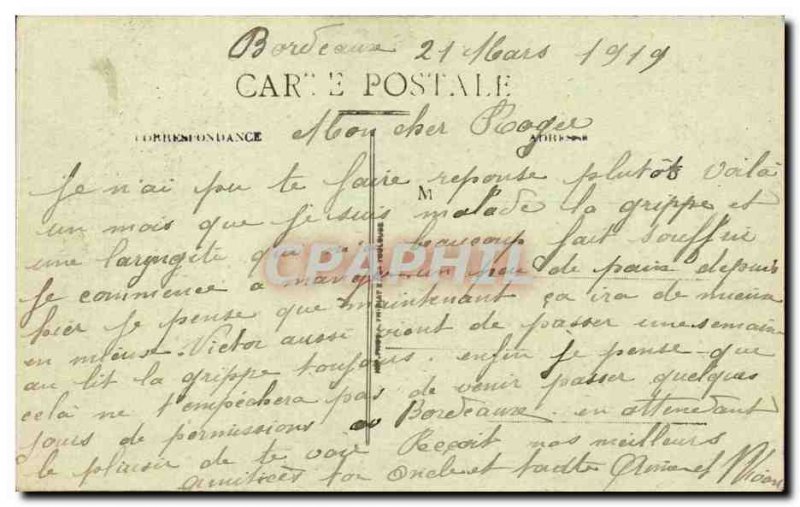 Bordeaux 21 Mars 1919
CARTE POSTALE
Mon cher Roger
CORRESPONDANCE ADRESSE
Je n'ai pu te faire reponse plutôt voilà
M
un mois que je suis malade la grippe et
une laryngite qui m'a beaucoup fait souffrir
CPAPHIL
Je commence a manger un peu de pain depuis
hier je pense que maintenant ça ira de mieux
en mieux. Victor aussi vient de passer une semaine
au lit la grippe toujours. enfin je pense que
celà ne t'empéchera pas de venir passer quelques
jours de permissions a Bordeaux. en attendant
le plaisir de te voir Reçoit nos meilleurs
amitiées ton Oncle et tante